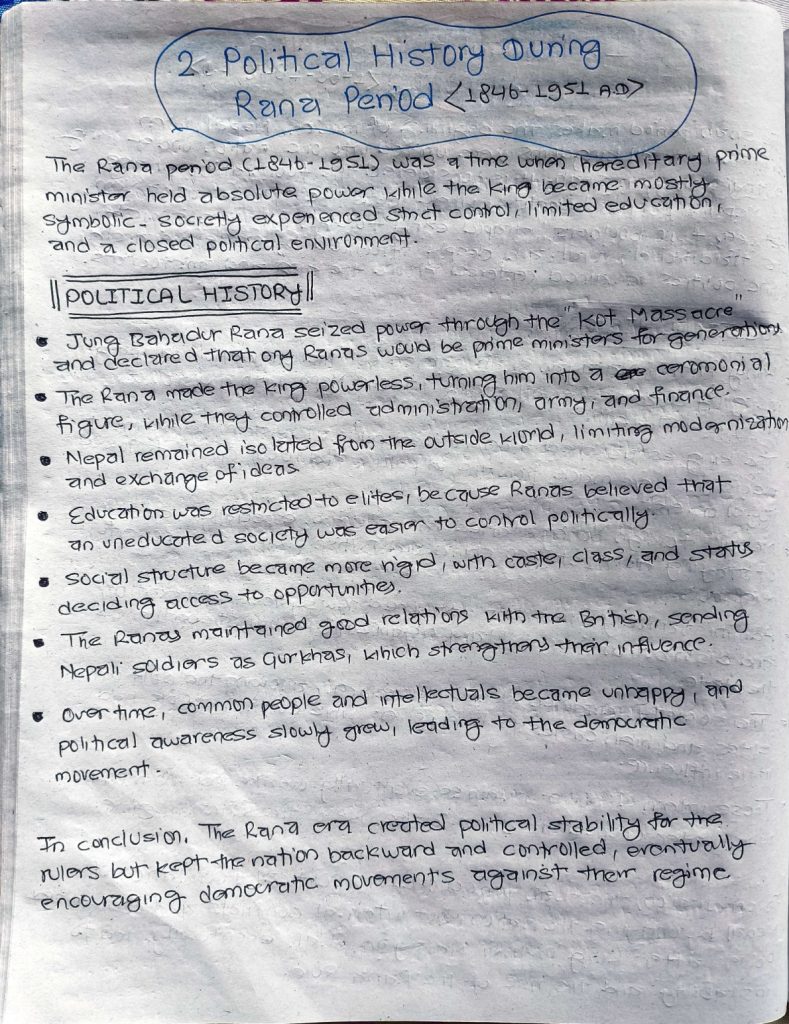 2. Political History During
Rana Period <1846-1951 A.D>
The Rana period (1846-1951) was a time when hereditary prime
minister held absolute power while the king became mostly
symbolic. society experienced strict control, limited education,
and a closed political environment.
POLITICAL HISTORY
• Jung Bahadur Rana seized power through the "Kot Massacre"
and declared that ony Ranas would be prime ministers for generations
• The Rana made the king powerless, turning him into a ceremonial
figure, while they controlled administration, army, and finance.
• Nepal remained isolated from the outside world, limiting modernization
and exchange of ideas
• Education was restricted to elites, because Ranas believed that
an uneducated society was easier to control politically.
• Social structure became more rigid, with caste, class, and status
deciding access to opportunities.
• The Ranas maintained good relations with the British, sending
Nepali soldiers as Gurkhas, which strengthens their influence.
• Over time, common people and intellectuals became unhappy, and
political awareness slowly grew, leading to the democratic
movement.
In conclusion, The Rana era created political stability for the
rulers but kept the nation backward and controlled, eventually
encouraging democratic movements against their regime